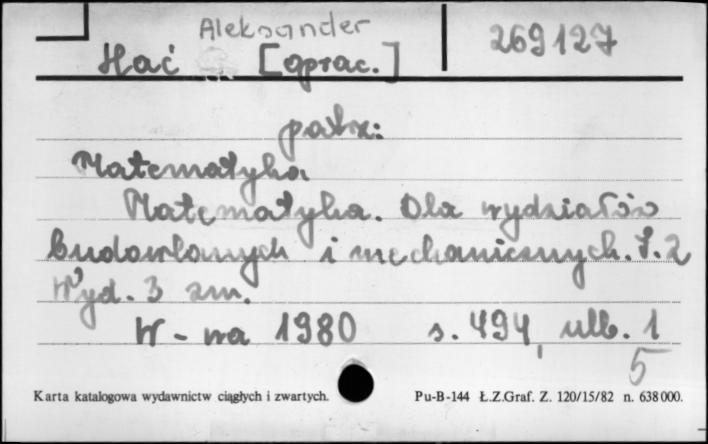 Aleksander
Hać [oprac.] 269127
patrz:
Matematyka
Matematyka. Dla wydziałów
budowlanych i mechanicznych. T. 2
Wyd. 3 zm.
W-wa 1980 s. 494, ulb. 1
5
Karta katalogowa wydawnictw ciągłych i zwartych. Pu-B-144 Ł.Z.Graf. Z. 120/15/82 n. 638000.